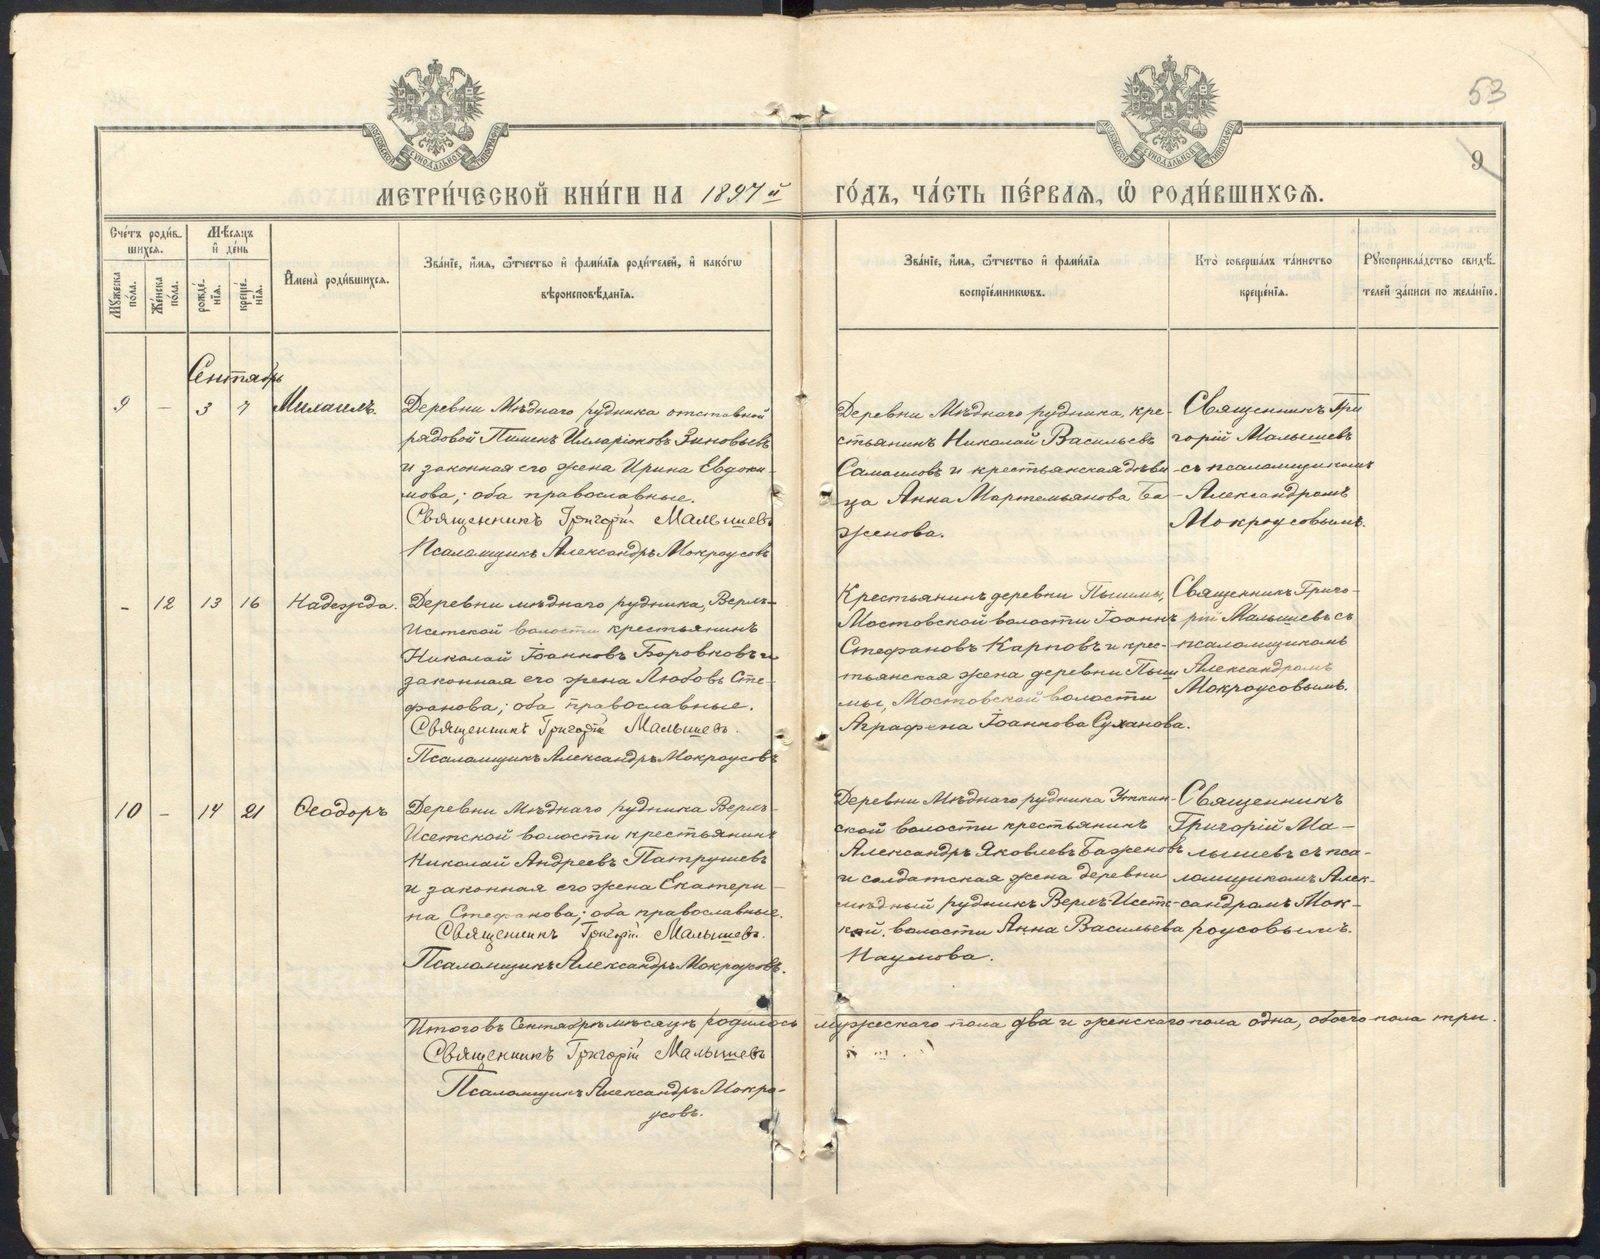 53
9
МОСКОВСКОЙ СѴНОДАЛЬНОЙ ТИПОГРАФІИ
МОСКОВСКОЙ СѴНОДАЛЬНОЙ ТИПОГРАФІИ
МЕТРИ́ЧЕСКОЙ КНИ́ГИ НА 1897й
ГО́ДЪ, ЧА́СТЬ ПЕ́РВАѦ, Ѡ РОДИ́ВШИХСѦ.
Сче́тъ роди́в-
шихся.
Мѣ́сяцъ
и҆ де́нь
Му́жеска по́ла.
Же́нска по́ла.
рожде́-нїя.
креще́-нїя.
И҆мена̀ роди́вшихся.
Зва́нїе, и҆́мя, ѻ҆́тчество и҆ фами́лїя роди́телей, и҆ како́гѡ
вѣроисповѣ́данїя.
Зва́нїе, и҆́мя, ѻ҆́тчество и҆ фами́лїя
воспрїе́мникѡвъ.
Кто̀ соверша́лъ та́инство
креще́нїя.
Рꙋкоприкла́дство свидѣ́-
телей за́писи по жела́нїю.
Сентябрь
9 - 3 7 Михаилъ.
Деревни Мѣднаго рудника отставной
рядовой Пименъ Илларіоновъ Зиновьевъ
и законная его жена Ирина Евдоки-
мова; оба православные.
Священникъ Григорій Малышевъ
Псаломщикъ Александръ Мокроусовъ
Деревни Мѣднаго рудника, кре-
стьянинъ Николай Васильевъ
Самойловъ и крестьянская дѣви-
ца Анна Мартемьянова Ба-
женова.
Священникъ Гри
горій Малышевъ
съ псаломщикомъ
Александромъ
Мокроусовымъ.
- 12 13 16 Надежда.
Деревни мѣднаго рудника, Верхъ-
Исетской волости крестьянинъ
Николай Іоанновъ Боровковъ и
законная его жена Любовь Сте-
фанова; оба православные.
Священникъ Григорій Малышевъ.
Псаломщикъ Александръ Мокроусовъ
Крестьянинъ деревни Пышмы,
Мостовской волости Іоаннъ
Стефановъ Карповъ и крес-
тьянская жена деревни Пыш
мы, Мостовской волости
Аграфена Іоаннова Суханова.
Священникъ Григо-
рій Малышевъ съ
псаломщикомъ
Александромъ
Мокроусовымъ.
10 - 14 21 Ѳеодоръ
Деревни Мѣднаго рудника Верхъ-
Исетской волости крестьянинъ
Николай Андреевъ Патрушевъ
и законная его жена Екатери-
на Стефанова; оба православные.
Священникъ Григорій Малышевъ.
Псаломщикъ Александръ Мокроусовъ.
Деревни Мѣднаго рудника Уткин-
ской волости крестьянинъ
Александръ Яковлевъ Баженовъ
и солдатская жена деревни
мѣдный рудникъ Верхъ-Исетс-
кой волости Анна Васильева
Наумова.
Священникъ
Григорій Ма-
лышевъ съ пса-
ломщикомъ Алек-
сандромъ Мок-
роусовымъ.
Итого въ Сентябрѣ мѣсяцѣ родилось мужескаго пола два и женскаго пола одна, обоего пола три.
Священникъ Григорій Малышевъ
Псаломщикъ Александръ Мокро-
усовъ.